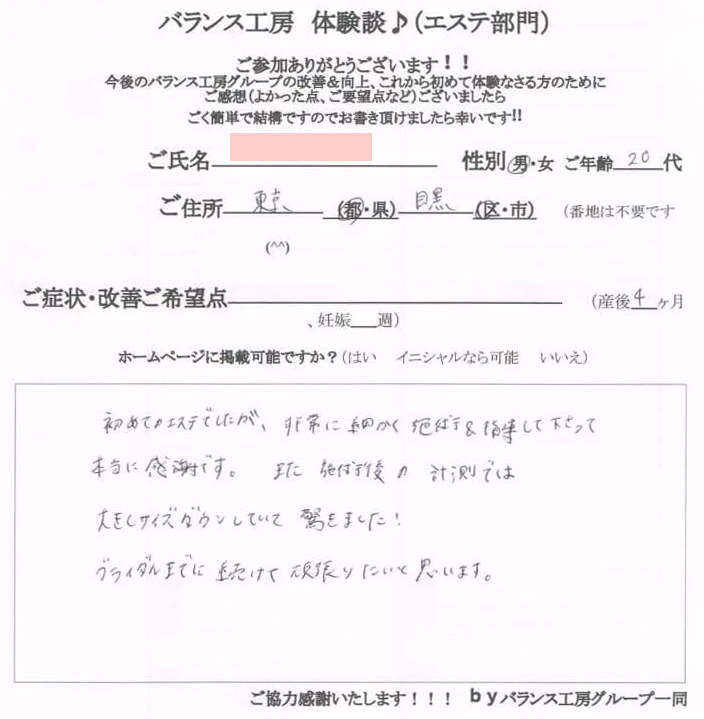 バランス工房 体験談♪(エステ部門)
ご参加ありがとうございます!!
今後のバランス工房グループの改善&向上、これから初めて体験なさる方のために
ご感想(よかった点、ご要望点など)ございましたら
ごく簡単で結構ですのでお書き頂けましたら幸いです!!
ご氏名 性別 男・女 ご年齢 20 代
ご住所 東京 (都・県) 目黒 (区・市) (番地は不要です
(^^)
ご症状・改善ご希望点 (産後 4 ヶ月
、妊娠___週)
ホームページに掲載可能ですか?(はい イニシャルなら可能 いいえ)
初めてのエステでしたが、非常に細かく施術&指導して下さって
本当に感謝です。 また 施術後の計測では
大きくサイズダウンしていて 驚きました!
ブライダルまでに 続けて 頑張りたいと思います。
ご協力感謝いたします!!! byバランス工房グループ一同